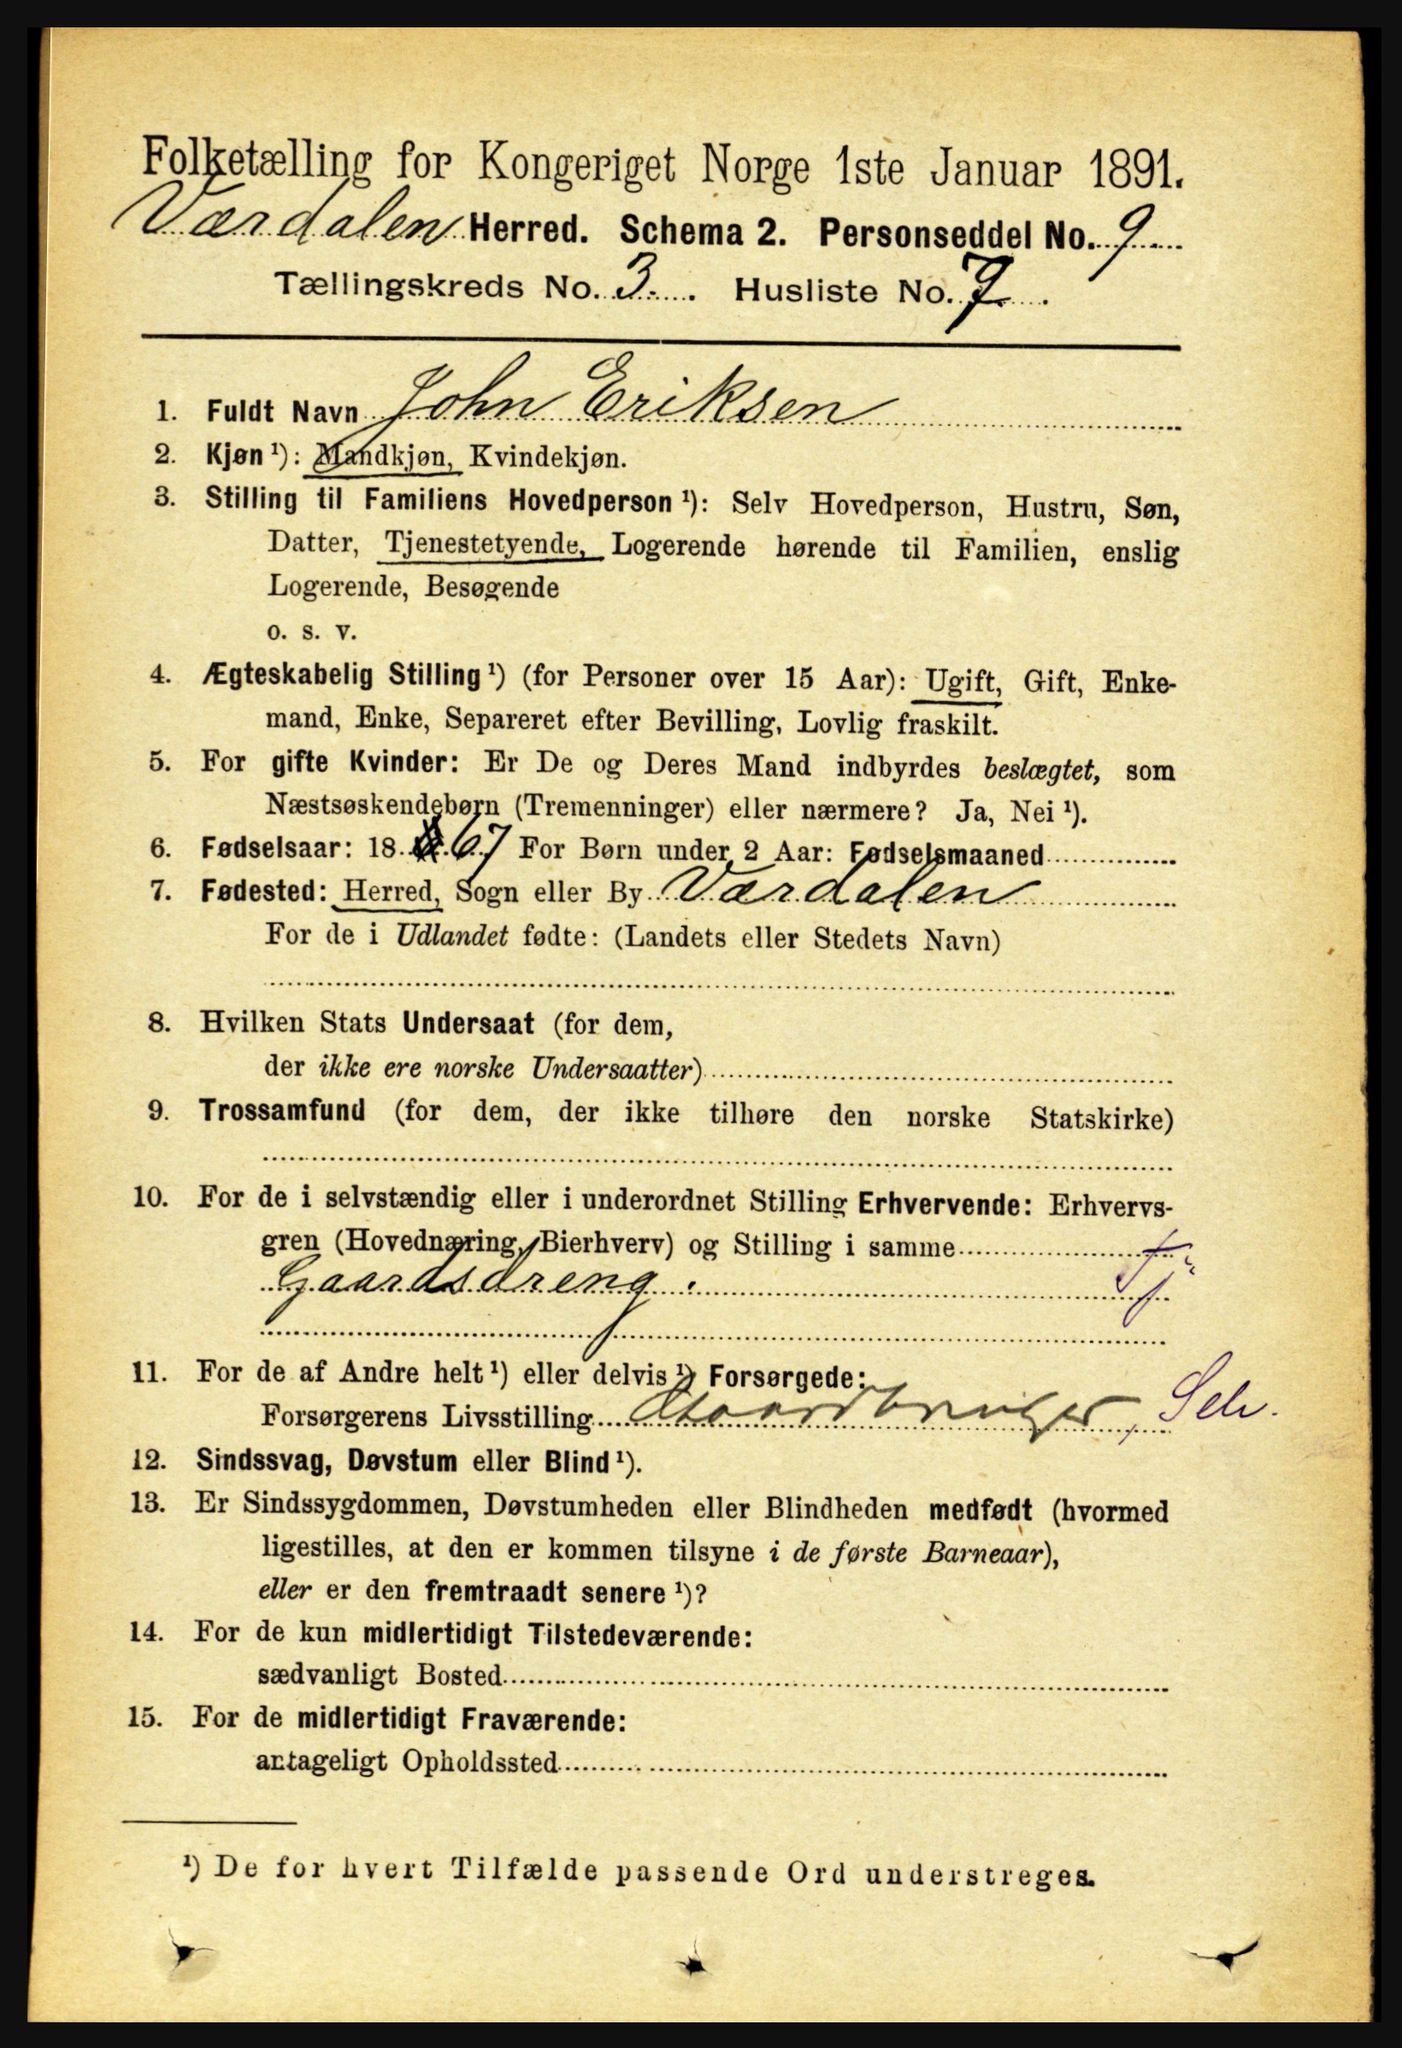 Folketælling for Kongeriget Norge 1ste Januar 1891.
Værdalen Herred. Schema 2. Personseddel No. 9
Tællingskreds No. 3. Husliste No. 7.
1. Fuldt Navn John Eriksen
2. Kjøn ¹): Mandkjøn, Kvindekjøn.
3. Stilling til Familiens Hovedperson ¹): Selv Hovedperson, Hustru, Søn,
Datter, Tjenestetyende, Logerende hørende til Familien, enslig
Logerende, Besøgende
o. s. v.
4. Ægteskabelig Stilling ¹) (for Personer over 15 Aar): Ugift, Gift, Enke-
mand, Enke, Separeret efter Bevilling, Lovlig fraskilt.
5. For gifte Kvinder: Er De og Deres Mand indbyrdes beslægtet, som
Næstsøskendebørn (Tremenninger) eller nærmere? Ja, Nei ¹).
6. Fødselsaar: 18 67 For Børn under 2 Aar: Fødselsmaaned
7. Fødested: Herred, Sogn eller By Værdalen
For de i Udlandet fødte: (Landets eller Stedets Navn)
8. Hvilken Stats Undersaat (for dem,
der ikke ere norske Undersaatter)
9. Trossamfund (for dem, der ikke tilhøre den norske Statskirke)
10. For de i selvstændig eller i underordnet Stilling Erhvervende: Erhvervs-
gren (Hovednæring, Bierhverv) og Stilling i samme
Gaardsdreng. Tj
11. For de af Andre helt ¹) eller delvis ¹) Forsørgede:
Forsørgerens Livsstilling Gaardbruger, Selv.
12. Sindssvag, Døvstum eller Blind ¹).
13. Er Sindssygdommen, Døvstumheden eller Blindheden medfødt (hvormed
ligestilles, at den er kommen tilsyne i de første Barneaar),
eller er den fremtraadt senere ¹)?
14. For de kun midlertidigt Tilstedeværende:
sædvanligt Bosted
15. For de midlertidigt Fraværende:
antageligt Opholdssted
¹) De for hvert Tilfælde passende Ord understreges.